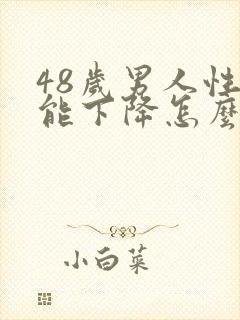 48歲男人性
能下降怎麼
小白菜